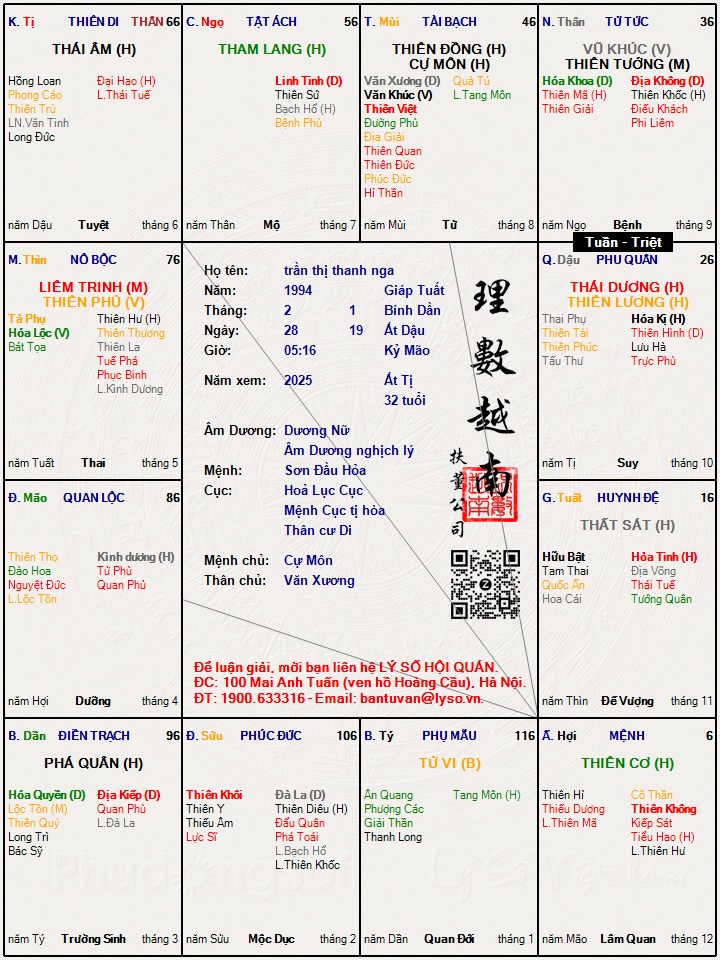 K. Tị THIÊN DI THÂN 66
THÁI ÂM (H)
Hồng Loan Đại Hao (H)
Phong Cáo L.Thái Tuế
Thiên Trù
LN.Văn Tinh
Long Đức
năm Dậu Tuyệt tháng 6
C. Ngọ TẬT ÁCH 56
THAM LANG (H)
Linh Tinh (D)
Thiên Sứ
Bạch Hổ (H)
Bệnh Phù
năm Thân Mộ tháng 7
T. Mùi TÀI BẠCH 46
THIÊN ĐỒNG (H)
CỰ MÔN (H)
Văn Xương (D) Quả Tú
Văn Khúc (V) L.Tang Môn
Thiên Việt
Đường Phù
Địa Giải
Thiên Quan
Thiên Đức
Phúc Đức
Hỉ Thần
năm Mùi Tử tháng 8
N. Thân TỬ TỨC 36
VŨ KHÚC (V)
THIÊN TƯỚNG (M)
Hóa Khoa (D) Địa Không (D)
Thiên Mã (H) Thiên Khốc (H)
Thiên Giải Điếu Khách
Phi Liêm
năm Ngọ Bệnh tháng 9
Tuần - Triệt
M. Thìn NÔ BỘC 76
LIÊM TRINH (M)
THIÊN PHỦ (V)
Tả Phụ Thiên Hư (H)
Hóa Lộc (V) Thiên Thương
Bát Tọa Thiên La
Tuế Phá
Phục Binh
L.Kình Dương
năm Tuất Thai tháng 5
Họ tên: trần thị thanh nga
Năm: 1994 Giáp Tuất
Tháng: 2 1 Bính Dần
Ngày: 28 19 Ất Dậu
Giờ: 05:16 Kỷ Mão
Năm xem: 2025 Ất Tị
32 tuổi
Âm Dương: Dương Nữ
Âm Dương nghịch lý
Mệnh: Sơn Đầu Hỏa
Cục: Hoả Lục Cục
Mệnh Cục tị hòa
Thân cư Di
Mệnh chủ: Cự Môn
Thân chủ: Văn Xương
理數越南
扶董公司
Để luận giải, mời bạn liên hệ LÝ SỐ HỘI QUÁN.
ĐC: 100 Mai Anh Tuấn (ven hồ Hoàng Cầu), Hà Nội.
ĐT: 1900.633316 - Email: bantuvan@lyso.vn.
Q. Dậu PHU QUÂN 26
THÁI DƯƠNG (H)
THIÊN LƯƠNG (H)
Thai Phụ Hóa Kị (H)
Thiên Tài Thiên Hình (D)
Thiên Phúc Lưu Hà
Tấu Thư Trực Phù
năm Tị Suy tháng 10
Đ. Mão QUAN LỘC 86
Thiên Thọ Kình dương (H)
Đào Hoa Tử Phù
Nguyệt Đức Quan Phủ
L.Lộc Tồn
năm Hợi Dưỡng tháng 4
G. Tuất HUYNH ĐỆ 16
THẤT SÁT (H)
Hữu Bật Hỏa Tinh (H)
Tam Thai Địa Võng
Quốc Ấn Thái Tuế
Hoa Cái Tướng Quân
năm Thìn Đế Vượng tháng 11
B. Dần ĐIỀN TRẠCH 96
PHÁ QUÂN (H)
Hóa Quyền (D) Địa Kiếp (D)
Lộc Tồn (M) Quan Phù
Thiên Quý L.Đà La
Long Trì
Bác Sỹ
năm Tý Trường Sinh tháng 3
Đ. Sửu PHÚC ĐỨC 106
Thiên Khôi Đà La (D)
Thiên Y Thiên Diêu (H)
Thiếu Âm Đẩu Quân
Lực Sĩ Phá Toái
L.Bạch Hổ
L.Thiên Khốc
năm Sửu Mộc Dục tháng 2
B. Tý PHỤ MẪU 116
TỬ VI (B)
Ân Quang Tang Môn (H)
Phượng Các
Giải Thần
Thanh Long
năm Dần Quan Đới tháng 1
Ấ. Hợi MỆNH 6
THIÊN CƠ (H)
Thiên Hỉ Cô Thần
Thiếu Dương Thiên Không
L.Thiên Mã Kiếp Sát
Tiểu Hao (H)
L.Thiên Hư
năm Mão Lâm Quan tháng 12
Phudongsoft Lý Số Việt Nam